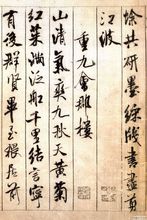 蜍共研墨綵牋書盡剪
江波
重九會郡樓
山清氣爽九秋天黄菊
紅茱滿泛船千里結言寧
有後群賢畢至猥居前